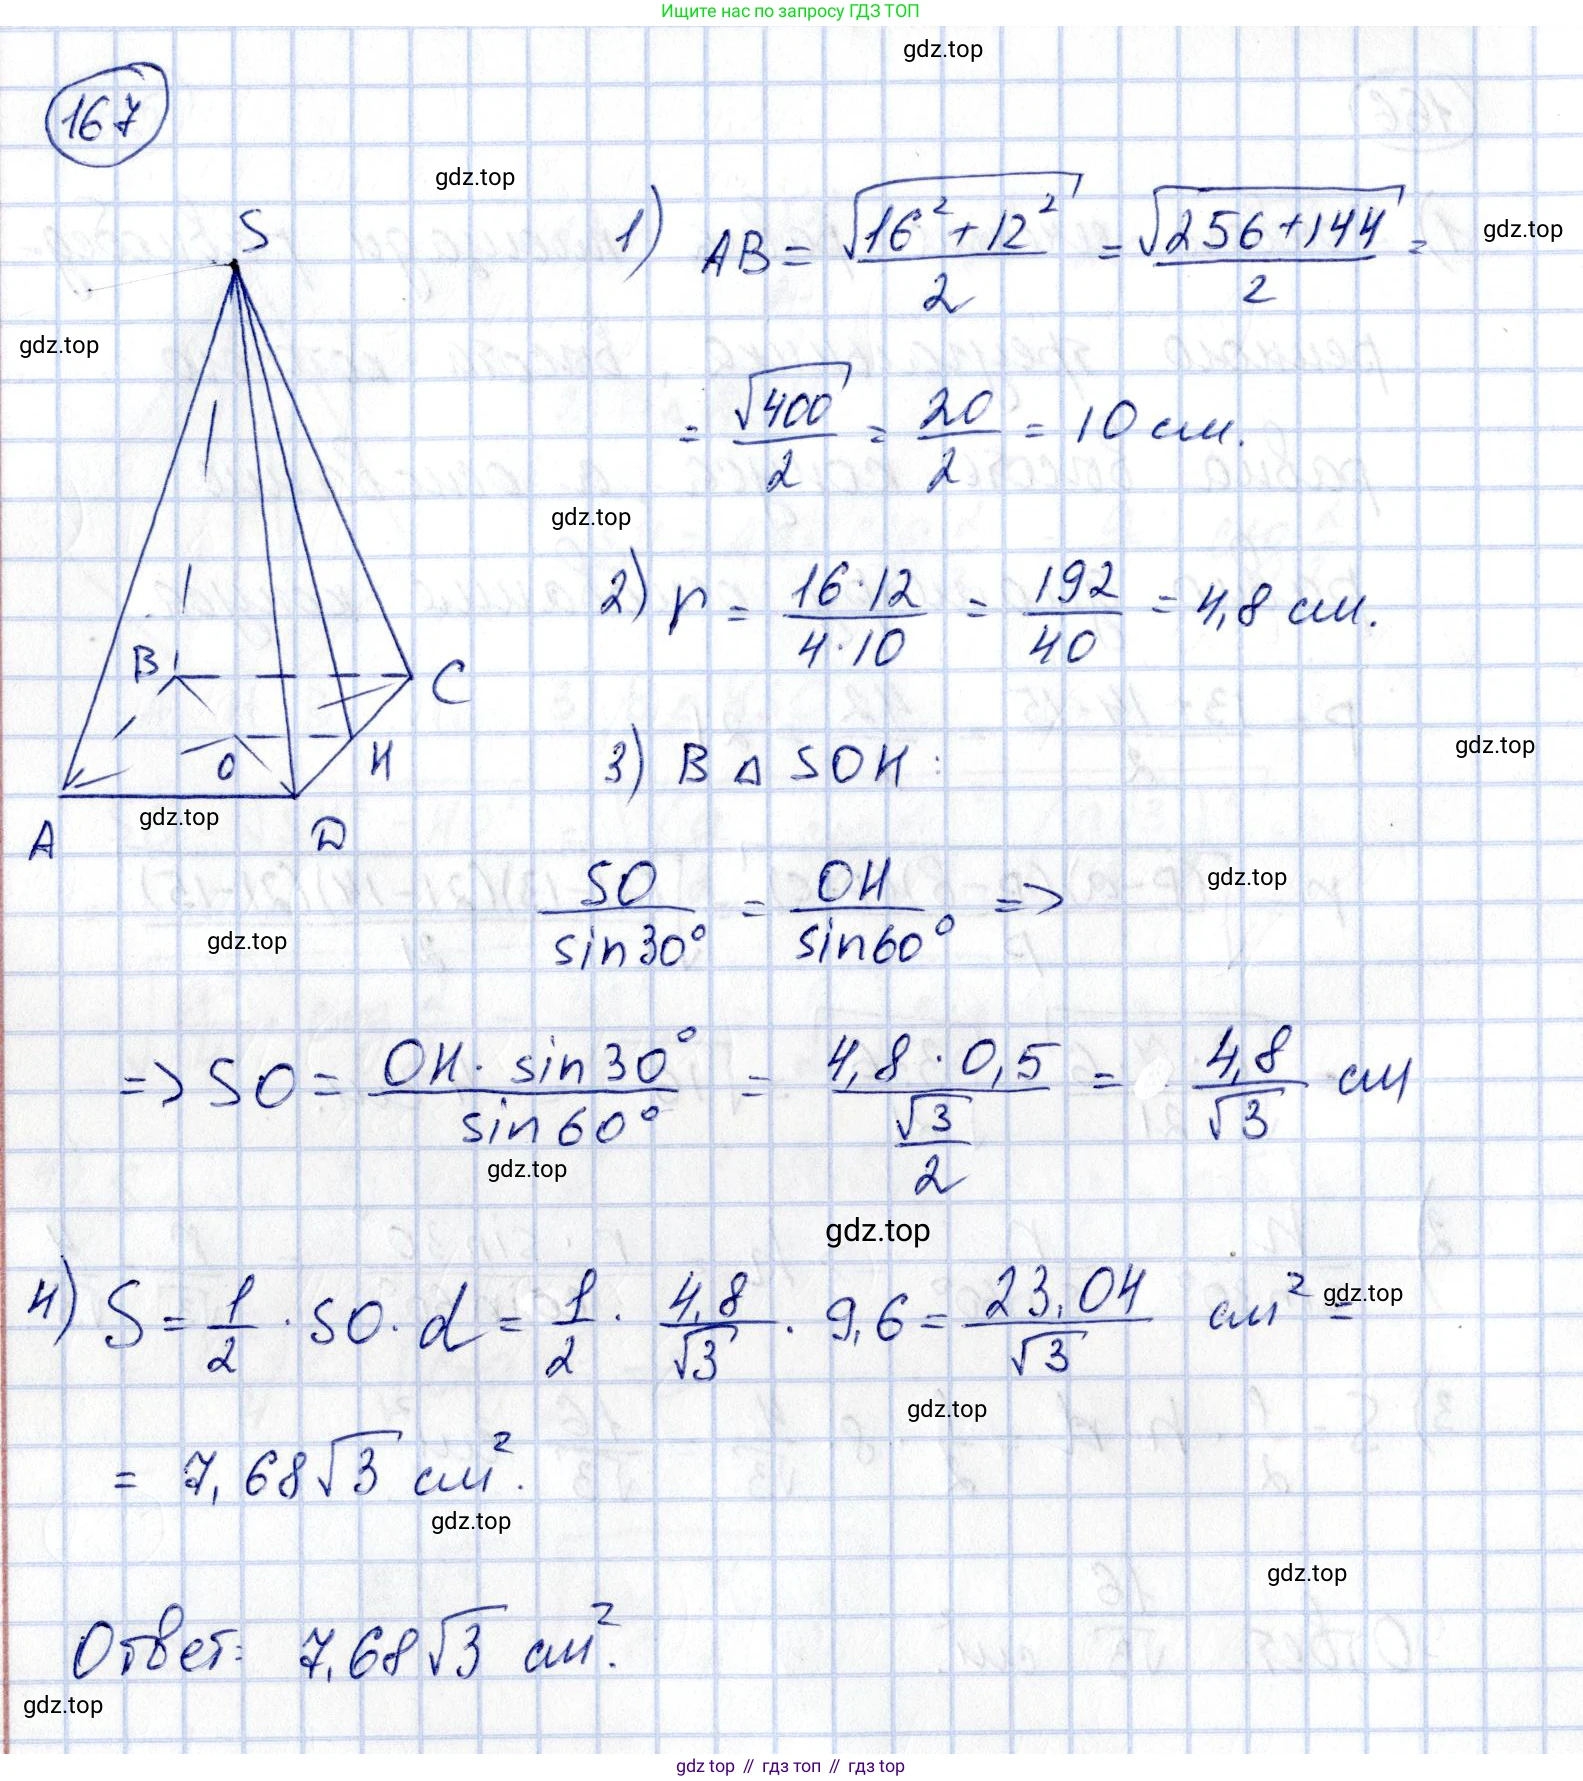 Ищите нас по запросу ГДЗ ТОП
gdz.top
167
gdz.top
S
1) AB = √(16² + 12²)/2 = √(256+144)/2 = gdz.top
gdz.top
= √400/2 = 20/2 = 10 см.
gdz.top
2) r = 16·12/4·10 = 192/40 = 4,8 см.
B C
gdz.top
O H
3) В △ SOH:
gdz.top
A D
SO/sin30° = OH/sin60° =>
gdz.top
gdz.top
=> SO = OH · sin30°/sin60° = 4,8 · 0,5/(√3/2) = 4,8/√3 см
gdz.top
gdz.top
4) S = 1/2 · SO · d = 1/2 · 4,8/√3 · 9,6 = 23,04/√3 см² =
gdz.top
gdz.top
= 7,68√3 см².
gdz.top
gdz.top
Ответ: 7,68√3 см².
gdz.top
gdz top // гдз топ // гдз top